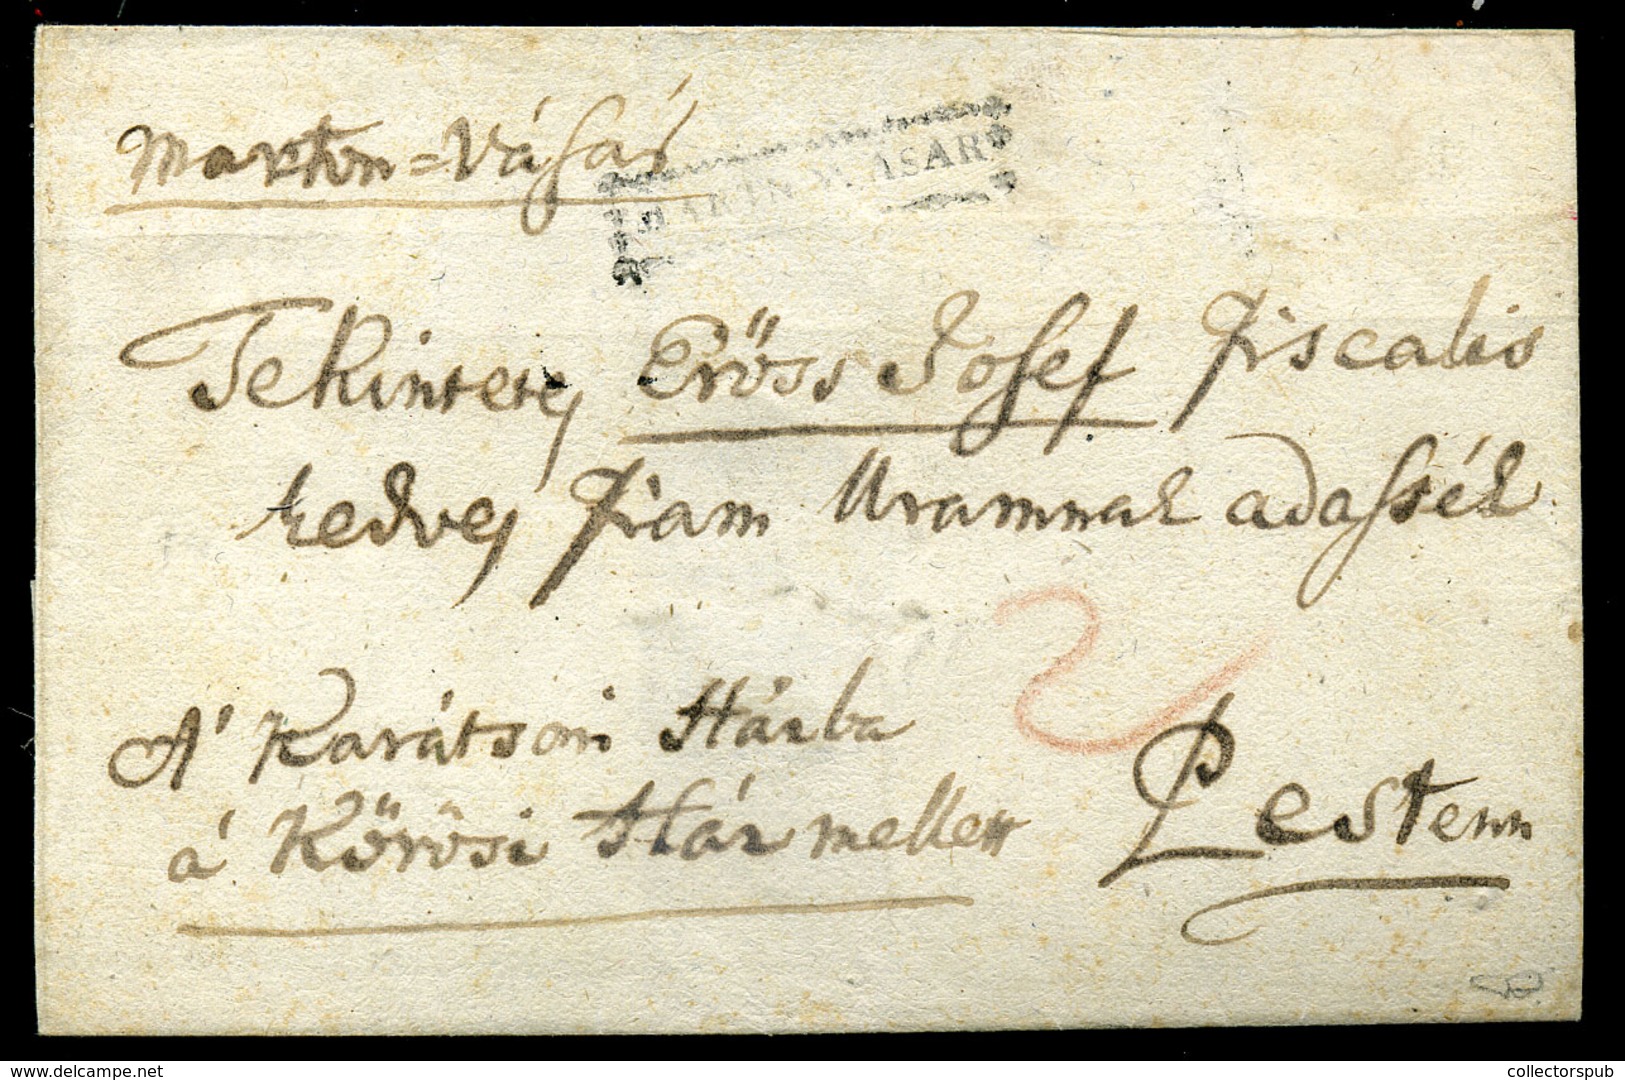 Marton=Vásár
MARTIN-WASAR
Tekintetes Erőss Josef Fiscalis
kedves Fiam Uramnak adassék
2
A' Karátsoni Házba
á Kőrösi Ház mellett
Pestenn
www.delcampe.net
collectorspub